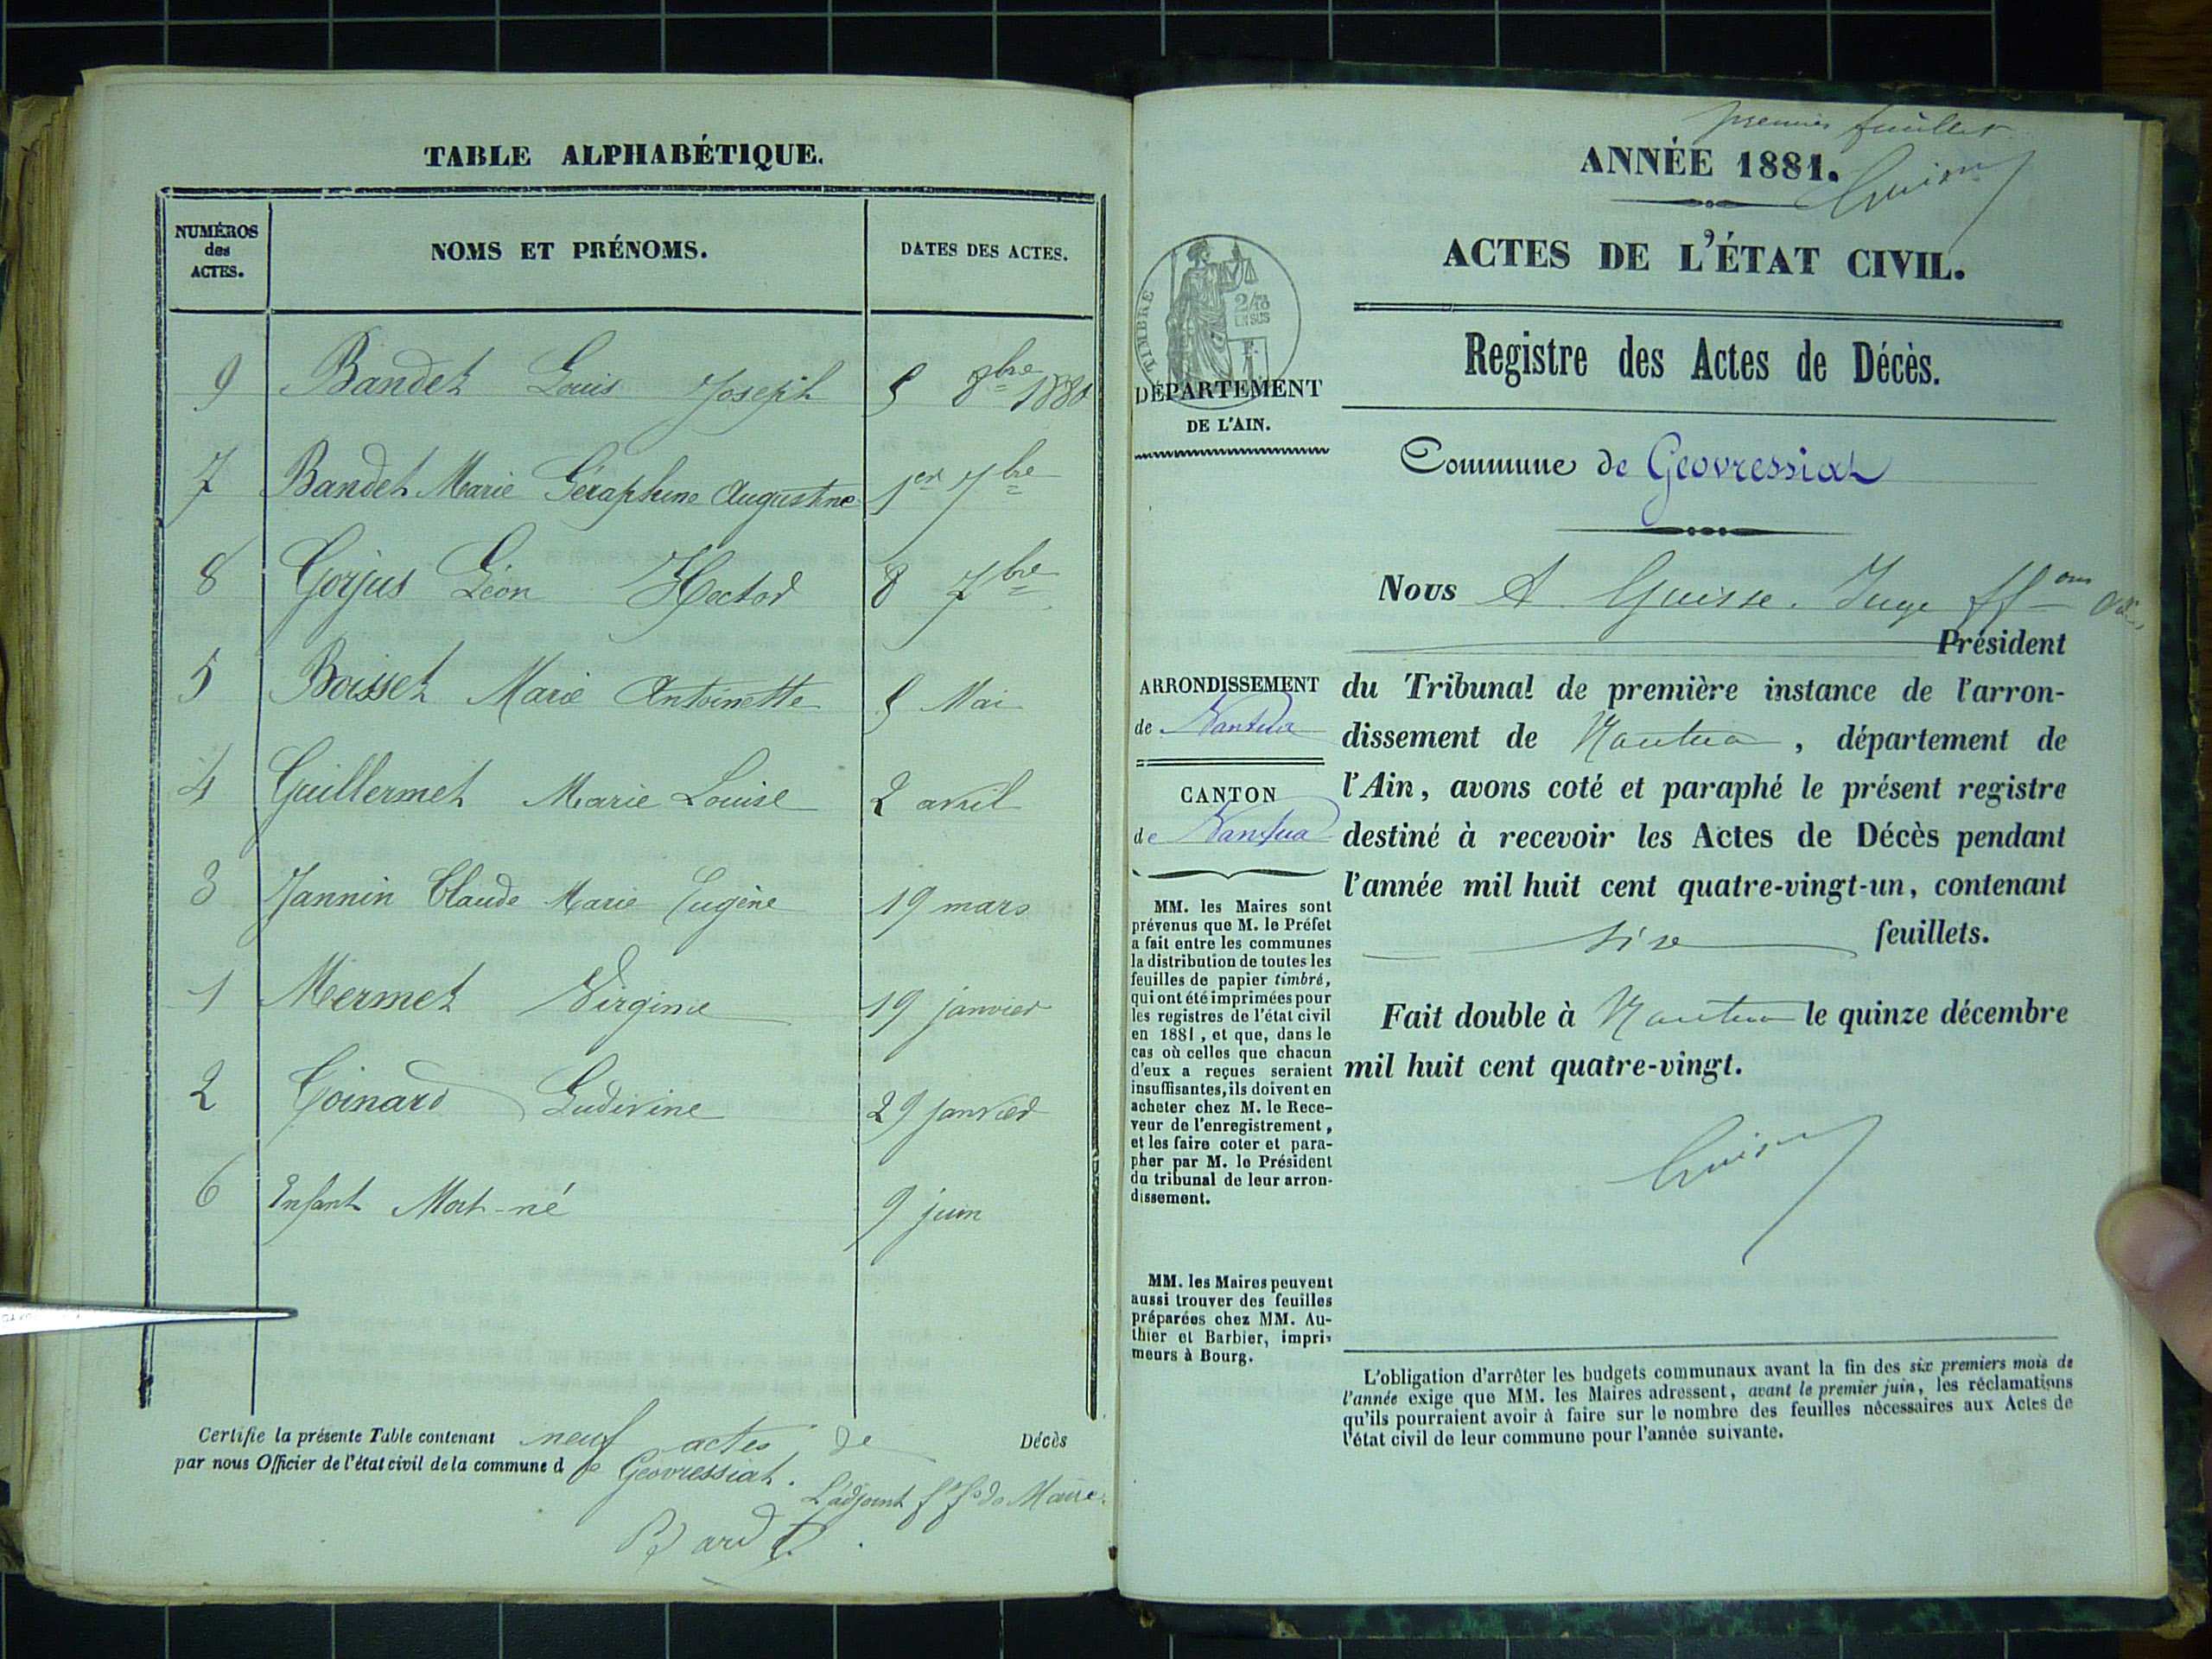 TABLE ALPHABÉTIQUE.
NUMÉROS
des
ACTES.
NOMS ET PRÉNOMS.
DATES DES ACTES.
9 Bandet Louis Joseph 5 8bre 1880
7 Bandet Marie Séraphine Augustine 1er 7bre
8 Gorjus Léon Hector 8 7bre
5 Boisset Marie Antoinette 5 Mai
4 Guillermet Marie Louise 2 avril
3 Jannin Claude Marie Eugène 19 mars
1 Mermet Virginie 19 janvier
2 Goinard Ludivine 29 janvier
6 Enfant Mort-né 9 juin
Certifie la présente Table contenant neuf actes de Décès
par nous Officier de l'état civil de la commune de Geovressiat.
L'adjoint ff de Maire
premier feuillet
ANNÉE 1881.
ACTES DE L'ÉTAT CIVIL.
TIMBRE
2/10
EN SUS
DÉPARTEMENT
DE L'AIN.
Registre des Actes de Décès.
Commune de Geovressiat
Nous A. Guisse. Juge ff
Président
du Tribunal de première instance de l'arron-
dissement de Nantua, département de
l'Ain, avons coté et paraphé le présent registre
destiné à recevoir les Actes de Décès pendant
l'année mil huit cent quatre-vingt-un, contenant
six feuillets.
Fait double à Nantua le quinze décembre
mil huit cent quatre-vingt.
ARRONDISSEMENT
de Nantua
CANTON
de Nantua
MM. les Maires sont
prévenus que M. le Préfet
a fait entre les communes
la distribution de toutes les
feuilles de papier timbré,
qui ont été imprimées pour
les registres de l'état civil
en 1881, et que, dans le
cas où celles que chacun
d'eux a reçues seraient
insuffisantes, ils doivent en
acheter chez M. le Rece-
veur de l'enregistrement,
et les faire coter et para-
pher par M. le Président
du tribunal de leur arron-
dissement.
MM. les Maires peuvent
aussi trouver des feuilles
préparées chez MM. Au-
thier et Barbier, impri-
meurs à Bourg.
L'obligation d'arrêter les budgets communaux avant la fin des six premiers mois de
l'année exige que MM. les Maires adressent, avant le premier juin, les réclamations
qu'ils pourraient avoir à faire sur le nombre des feuilles nécessaires aux Actes de
l'état civil de leur commune pour l'année suivante.